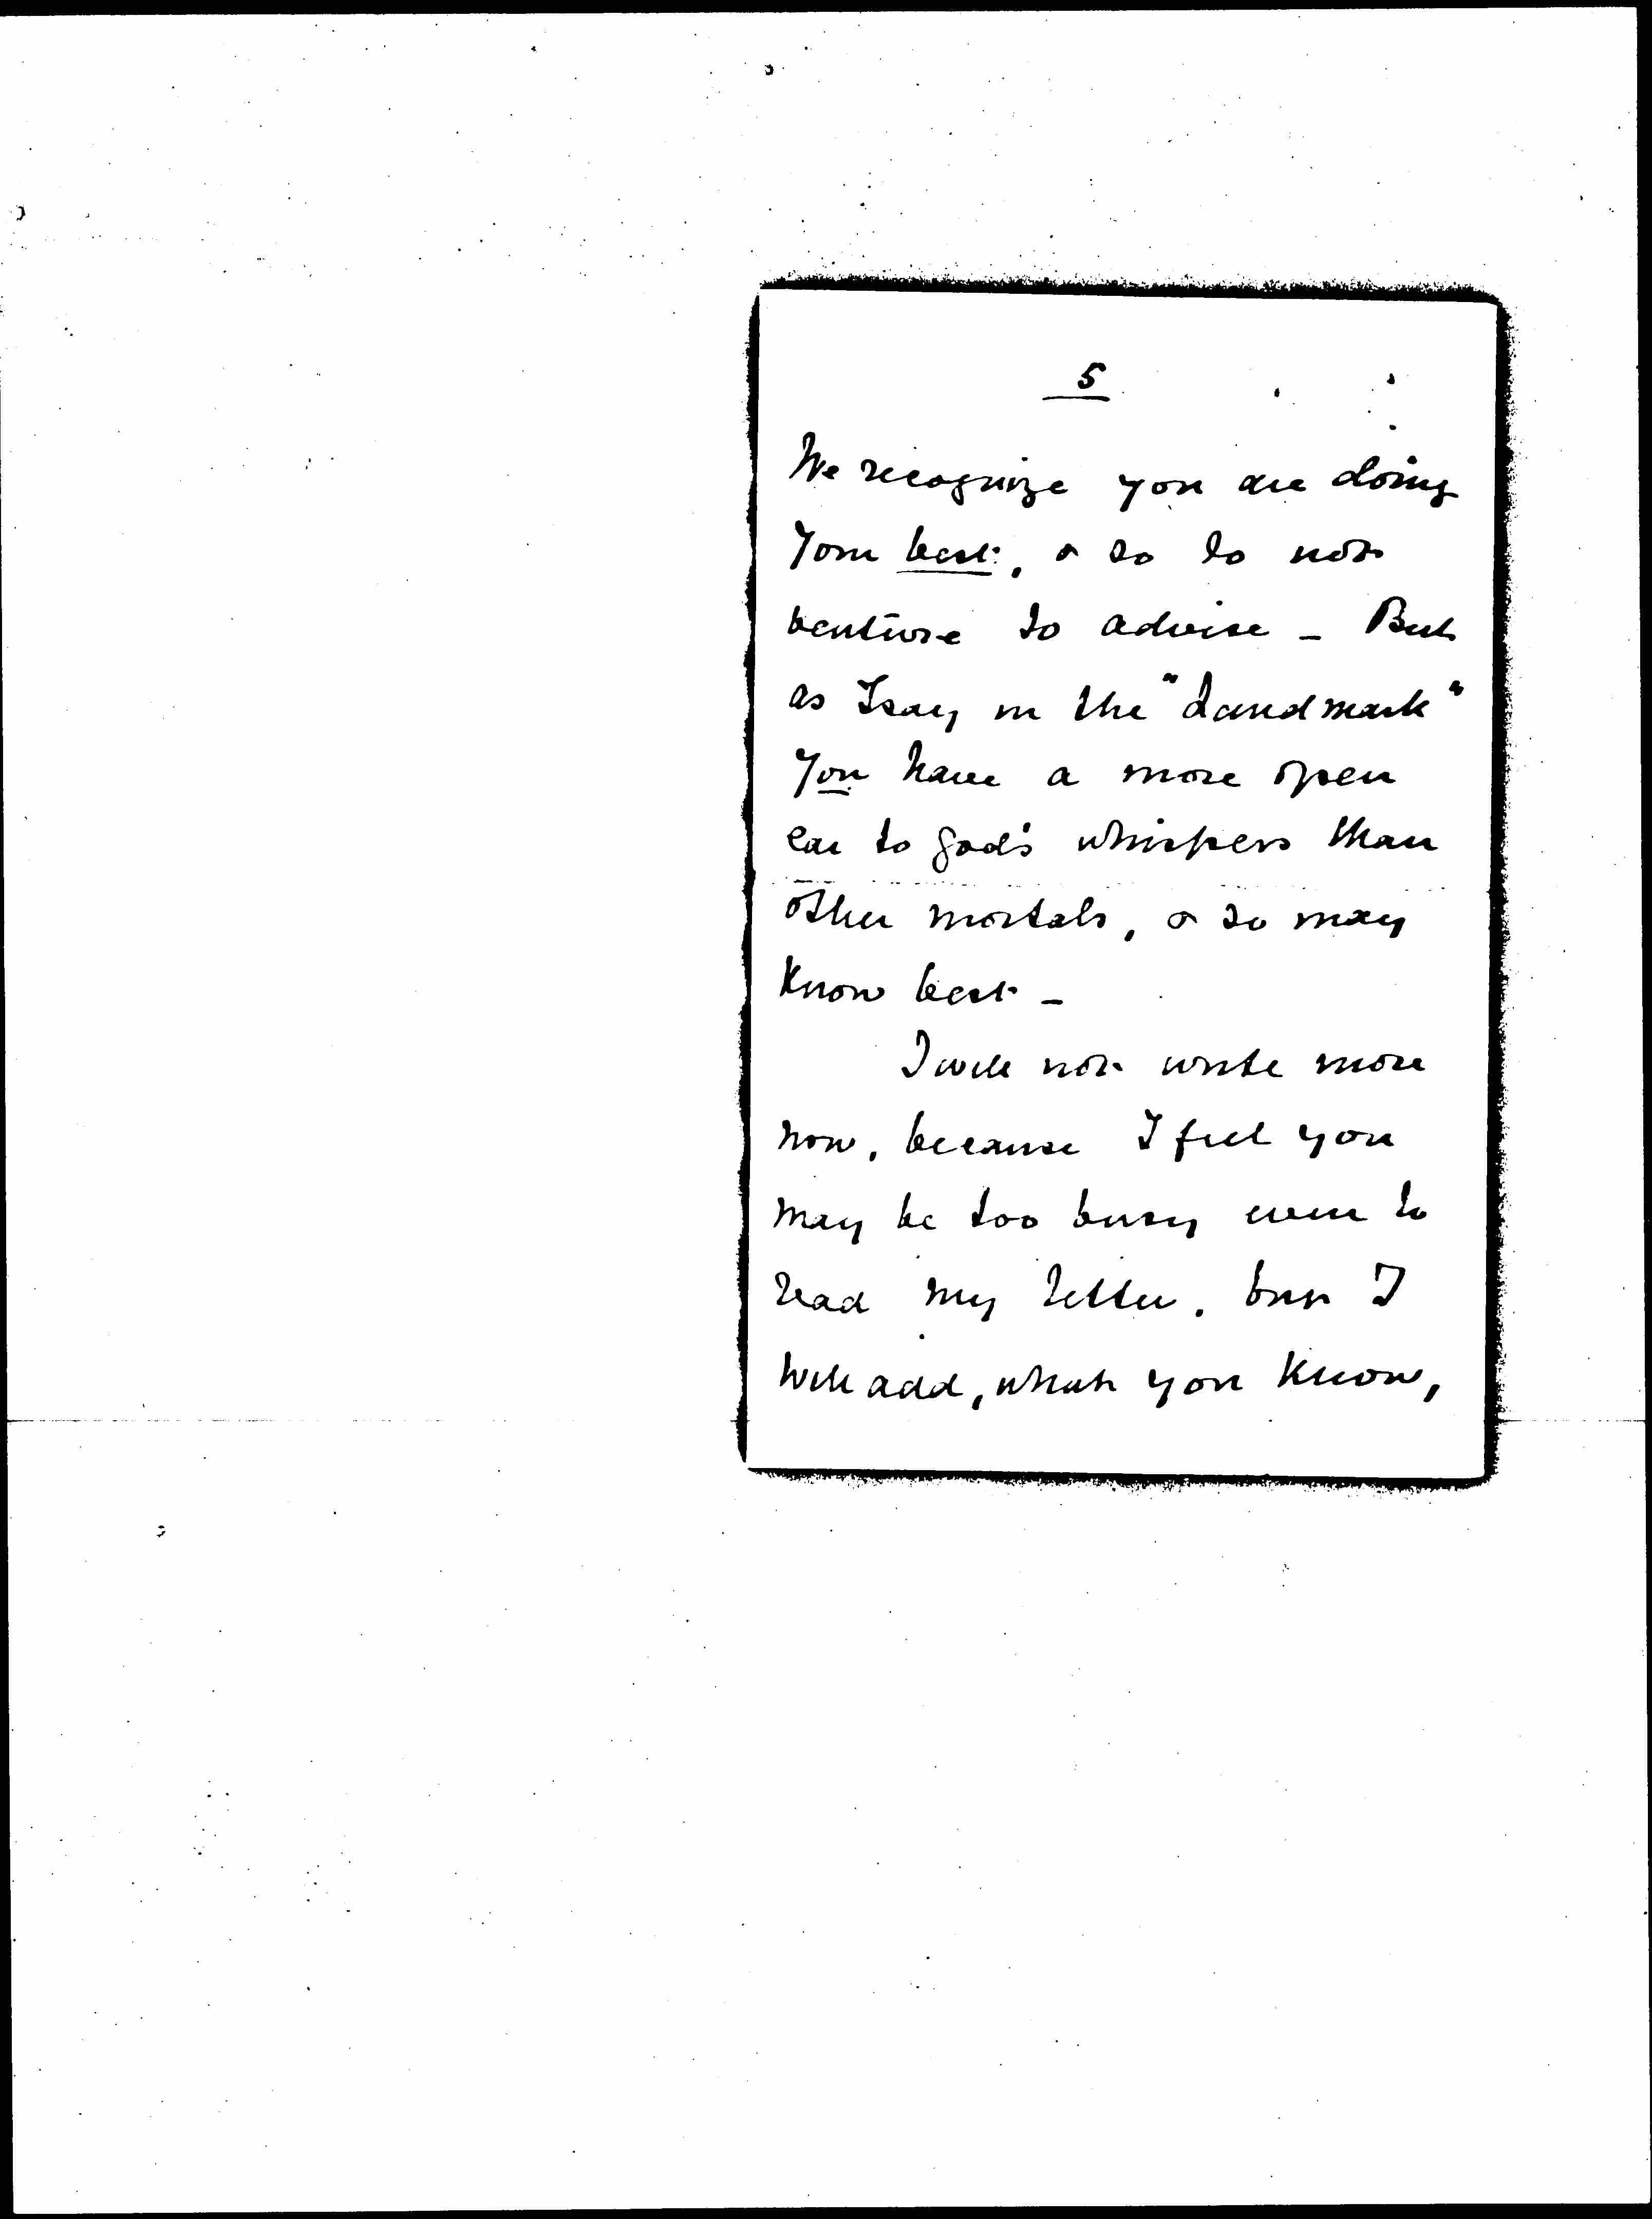 5
We recognize you are doing
Your best, & so do not
venture to advise – But
as I say in the "Landmark"
You have a more open
ear to God's whispers than
other mortals, & so may
know best –
I will not write more
now, because I feel you
may be too busy even to
read my letter. but I
will add, what you know,